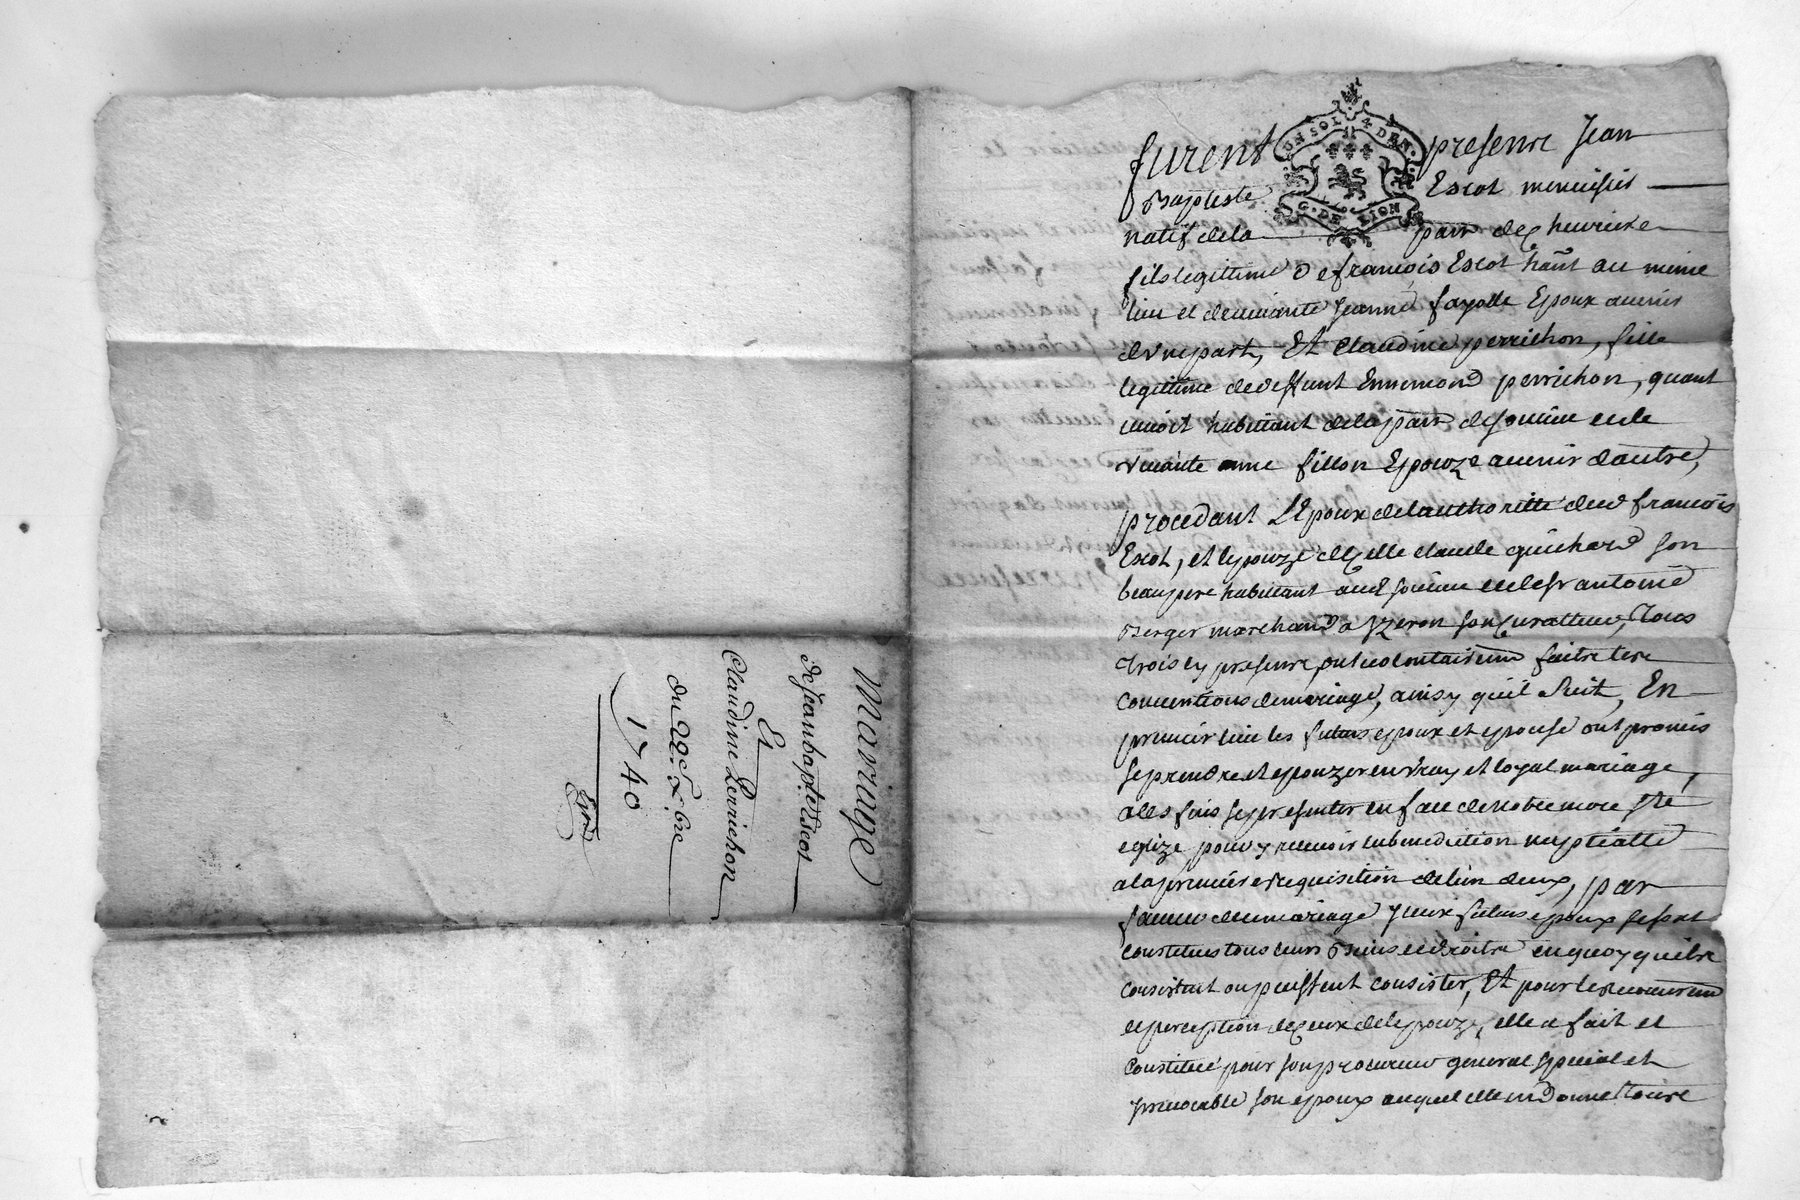 Mariage
de Jean bapte Escot
Et
Claudine Perrichon
du 22e Xbre
1740
furent presents Jean
Baptiste Escot menuisier
UN SOL 4 DEN.
G. DE LION
natif de la parr de
fils legittime de françois Escot hant au meme
lieu et de vivante Jeanne fayolle Epoux avenir
d'une part, Et Claudine perrichon, fille
legittime de deffunt Ennemond perrichon, quant
vivoit habittant de la parr de et de
vivante anne fillon Epouze avenir d'autre,
procedant L'Epoux de lauthoritté dud françois
Escot, et lepouze de celle claude guichard son
beaupere habittant aud et de sr antoine
Berger marchand a yzeron son Curatteur, Tous
trois cy presents, ont volontairemt fait les
conventions de mariage, ainsy quil suit, En
premier lieu les futurs epoux et epouse ont promis
se prendre et epouzer en vray et loyal mariage,
a ces fins se presenter en face de notre mere Ste
eglize pour y recevoir la benediction nuptialle
a la premiere requisition de lun deux, par
faveur dud mariage yceux futurs epoux se sont
constitues tous leurs Biens et droits en quoy quils
consistent ou puissent consister, Et pour le recouvremt
et perception de ceux de lepouze, elle a fait et
constitué pour son procureur general special et
yrrevocable son epoux auquel elle en donne